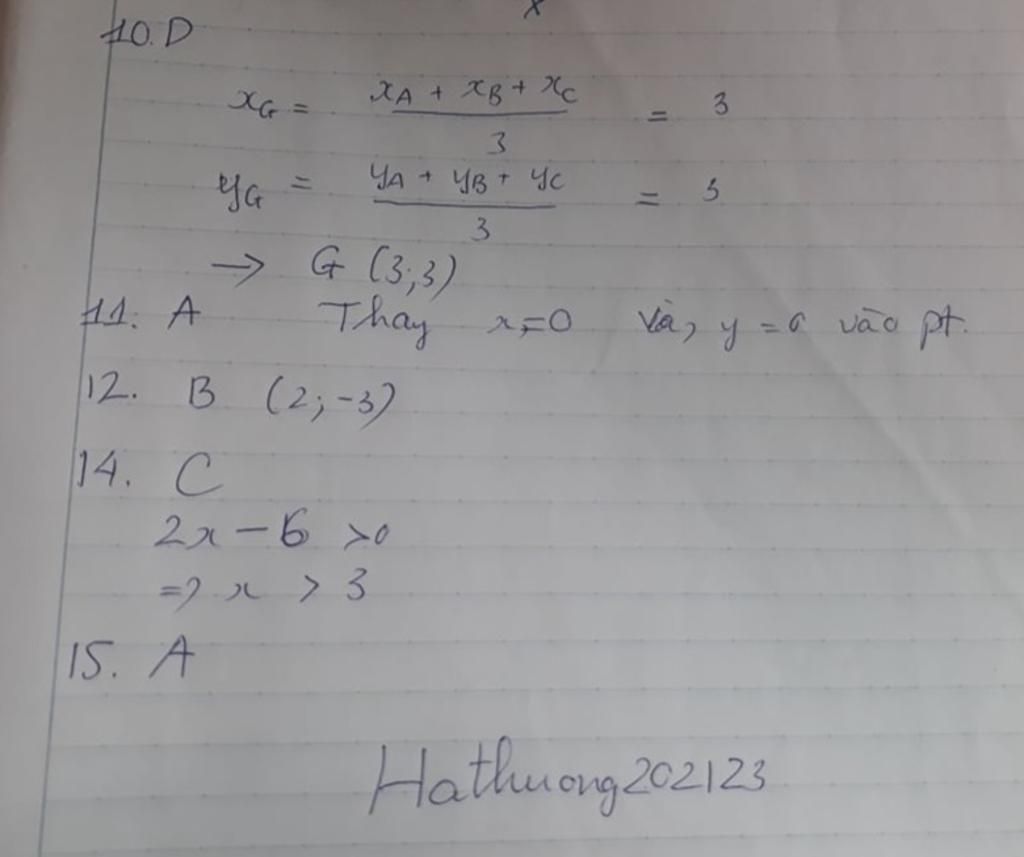 x
10. D
x_G = (x_A + x_B + x_C) / 3 = 3
y_G = (y_A + y_B + y_C) / 3 = 3
→ G (3;3)
11. A Thay x=0 và, y = 0 vào pt.
12. B (2;-3)
14. C
2x - 6 >0
=> x > 3
15. A
Hathuong202123